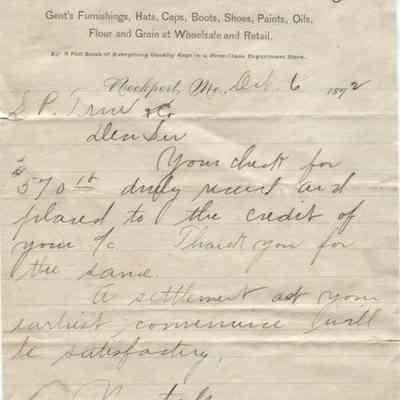 Gent's Furnishings, Hats, Caps, Boots, Shoes, Paints, Oils,
Flour and Grain at Wholesale and Retail.
A Full Stock of Everything Usually Kept in a First-Class Department Store.
Rockport, Mo., 6 1892
S. P. True & Co
Dear Sir
Your check for
$570 duly received and
placed to the credit of
your a/c Thank you for
the same.
A settlement at your
earliest convenience will
be satisfactory.